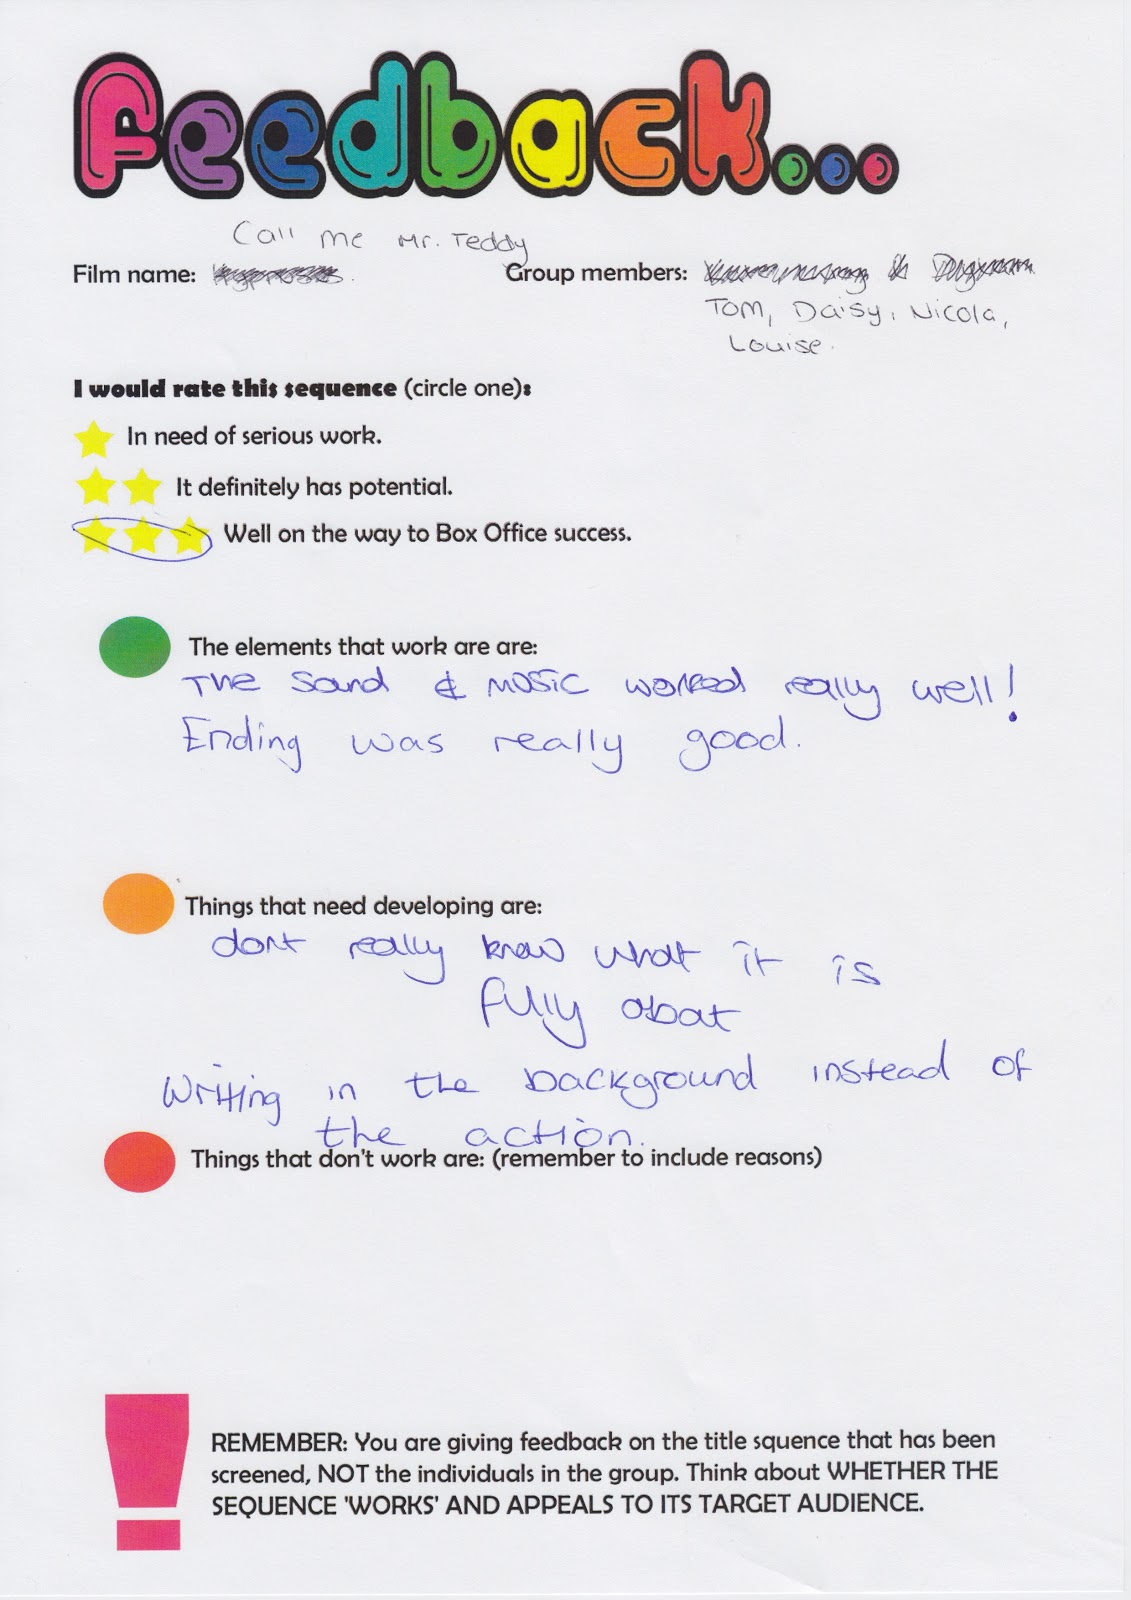 Feedback...
Call me Mr. Teddy
Film name: Group members:
Tom, Daisy, Nicola,
Louise.
I would rate this sequence (circle one):
In need of serious work.
It definitely has potential.
Well on the way to Box Office success.
The elements that work are are:
The sound & music worked really well!
Ending was really good.
Things that need developing are:
dont really know what it is
fully about
Writing in the background instead of
the action.
Things that don't work are: (remember to include reasons)
REMEMBER: You are giving feedback on the title squence that has been
screened, NOT the individuals in the group. Think about WHETHER THE
SEQUENCE 'WORKS' AND APPEALS TO ITS TARGET AUDIENCE.